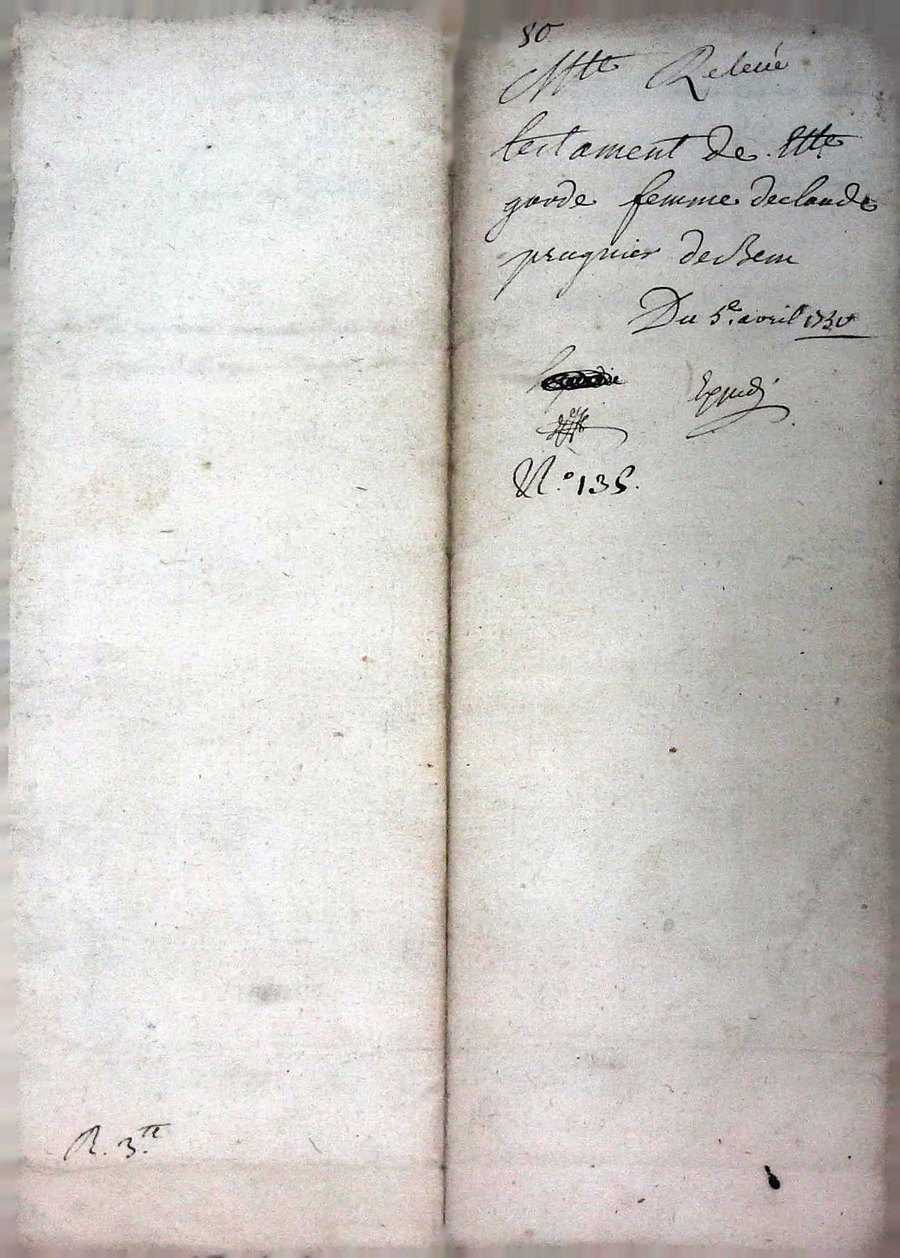 80
Relevé
testament de Ette
gorde femme declaude
prugnier de Bem
Du 5e. avril 1730
Expedi
N.o 135.
R. 3.tt